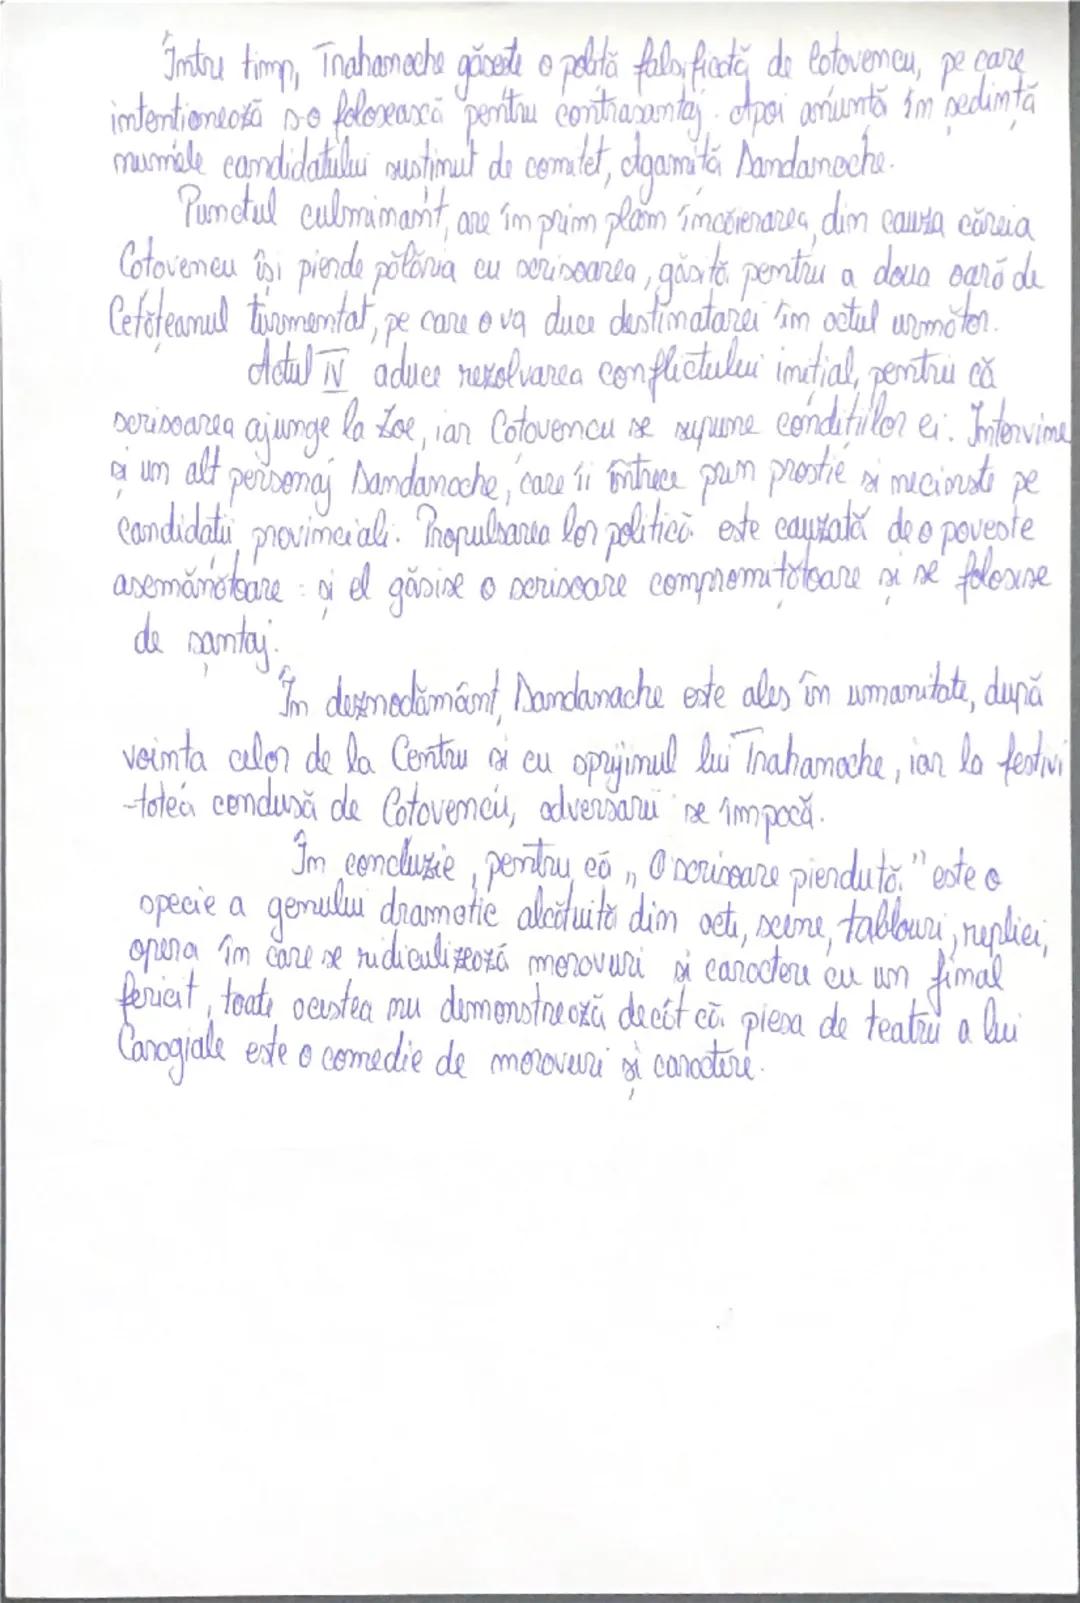 Între timp, Trahanache găsește o poliță falsificată de Cotovencu, pe care
intenționează s-o folosească pentru contrașantaj. Apoi anunță în ședință
numele candidatului susținut de comitet, Agamiță Dandanache.
Punctul culminant, are în prim plan încăierarea, din cauza căreia
Cotovencu își pierde pălăria cu scrisoarea, găsită pentru a doua oară de
Cetățeanul turmentat, pe care o va duce destinatarei în actul următor.
Actul IV aduce rezolvarea conflictului inițial, pentru că
scrisoarea ajunge la Zoe, iar Cotovencu se supune condițiilor ei. Intervine
și un alt personaj Dandanache, care îi întrece prin prostie și necinste pe
candidații provinciali. Propulsarea lor politică este cauzată de o poveste
asemănătoare: și el găsise o scrisoare compromițătoare și se folosise
de șantaj.
În deznodământ, Dandanache este ales în umanitate, după
voința celor de la Centru și cu sprijinul lui Trahanache, iar la festivi
-tatea condusă de Cotovencu, adversarii se împacă.
În concluzie, pentru că „O scrisoare pierdută" este o
specie a genului dramatic alcătuită din acte, scene, tablouri, replici,
opera în care se ridiculizează moravuri și caractere cu un final
fericit, toate acestea nu demonstrează decât că piesa de teatru a lui
Caragiale este o comedie de moravuri și caractere.